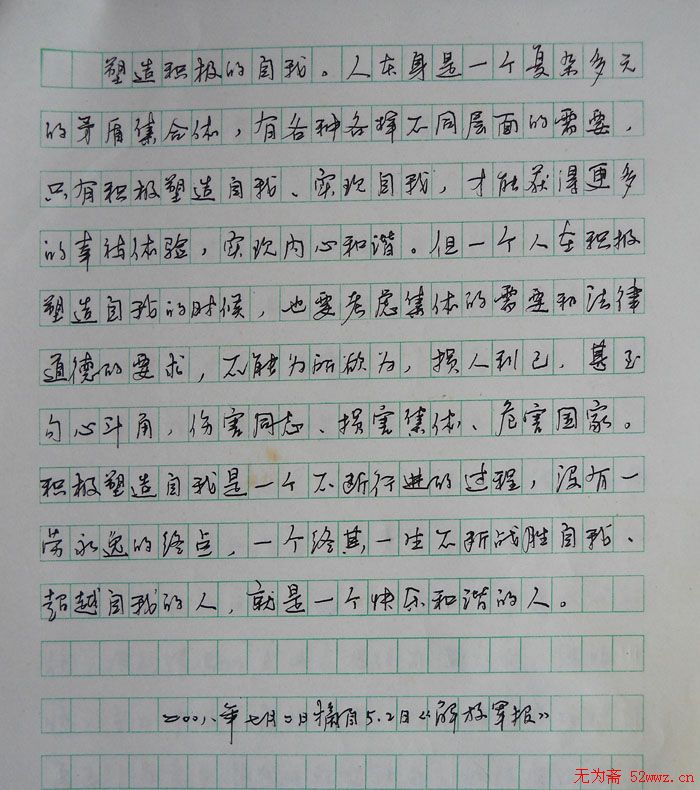 塑造积极的自我。人本身是一个复杂多元
的矛盾集合体，有各种各样不同层面的需要，
只有积极塑造自我、实现自我，才能获得更多
的幸福体验，实现内心和谐。但一个人在积极
塑造自我的时候，也要考虑集体的需要和法律
道德的要求，不能为所欲为，损人利己，甚至
勾心斗角，伤害同志、损害集体、危害国家。
积极塑造自我是一个不断行进的过程，没有一
劳永逸的终点，一个终其一生不断战胜自我、
超越自我的人，就是一个快乐和谐的人。
年七月 日摘自5.2日《解放军报》
无为斋 52wwz.cn